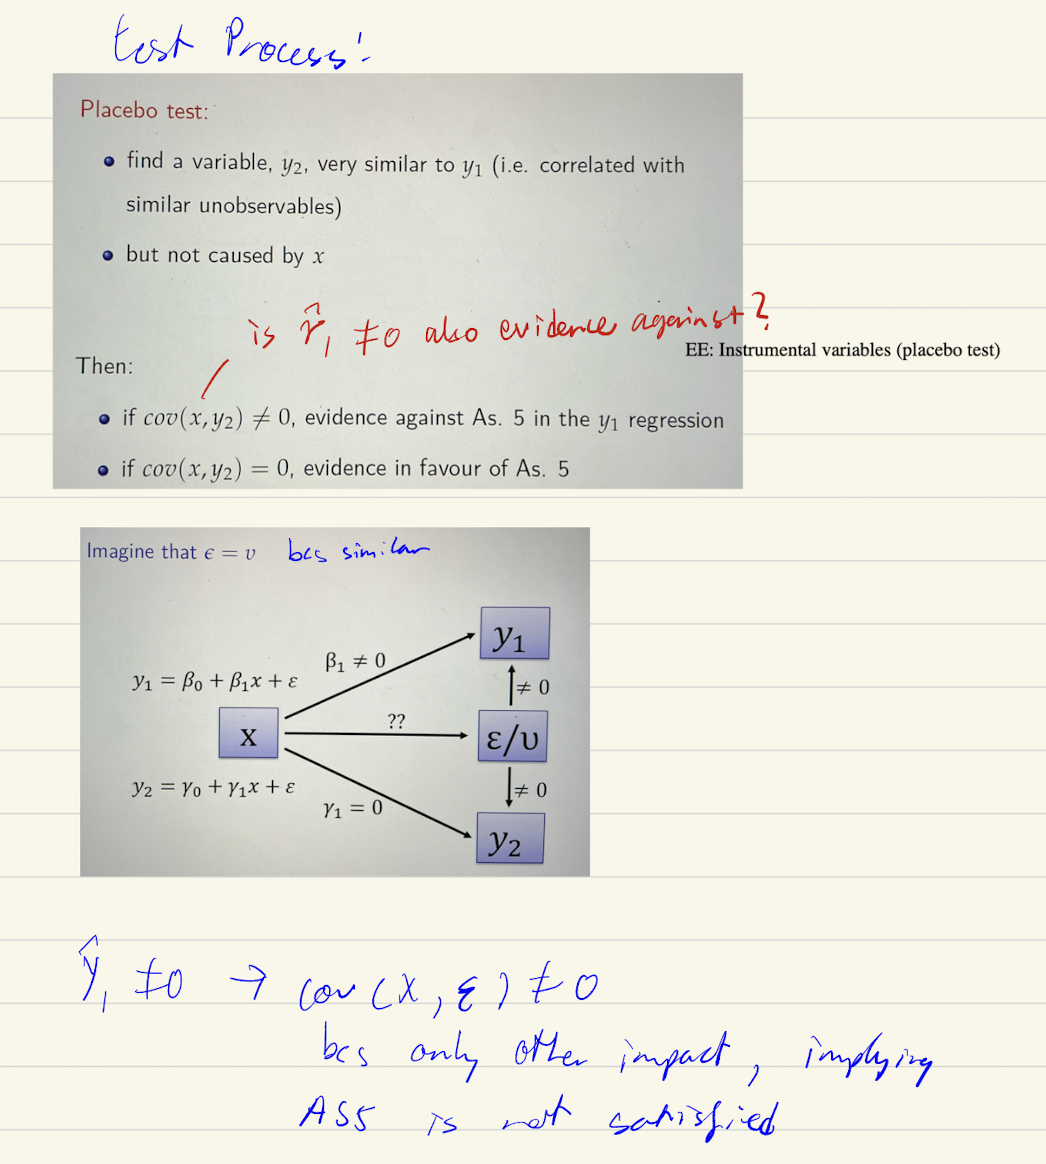 test Process:
Placebo test:
• find a variable, y₂, very similar to y₁ (i.e. correlated with
similar unobservables)
• but not caused by x
is γ̂₁ ≠0 also evidence against?
EE: Instrumental variables (placebo test)
Then:
• if cov(x, y₂) ≠ 0, evidence against As. 5 in the y₁ regression
• if cov(x, y₂) = 0, evidence in favour of As. 5
Imagine that ϵ = υ bcs similar
y₁
β₁ ≠ 0
y₁ = β₀ + β₁x + ε
≠ 0
??
x
ε/υ
y₂ = γ₀ + γ₁x + ε
≠ 0
γ₁ = 0
y₂
γ̂₁ ≠0 → cov(x, ε) ≠ 0
bcs only other impact, implying
ASS is not satisfied